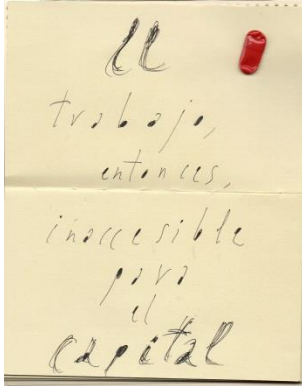 El
trabajo,
entonces,
inaccesible
para
el
capital